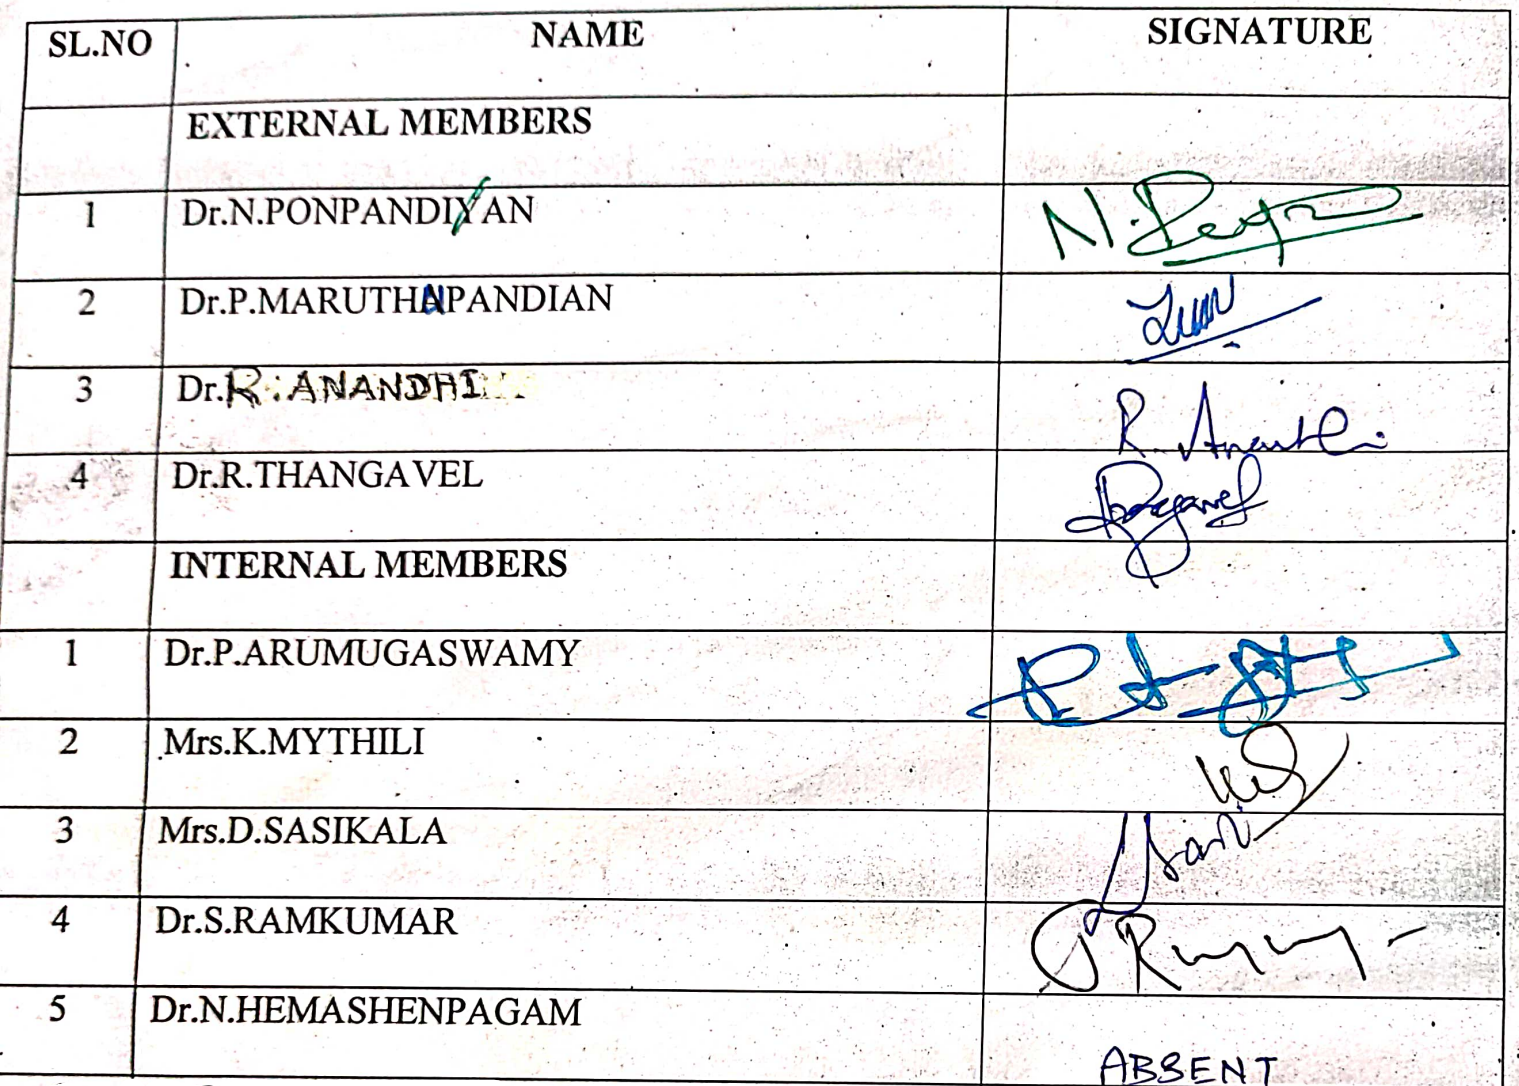 SL.NO NAME SIGNATURE
EXTERNAL MEMBERS
1 Dr.N.PONPANDIYAN
2 Dr.P.MARUTHUPANDIAN
3 Dr.R.ANANDHI R. Ananthi
4 Dr.R.THANGAVEL
INTERNAL MEMBERS
1 Dr.P.ARUMUGASWAMY
2 Mrs.K.MYTHILI
3 Mrs.D.SASIKALA
4 Dr.S.RAMKUMAR
5 Dr.N.HEMASHENPAGAM ABSENT